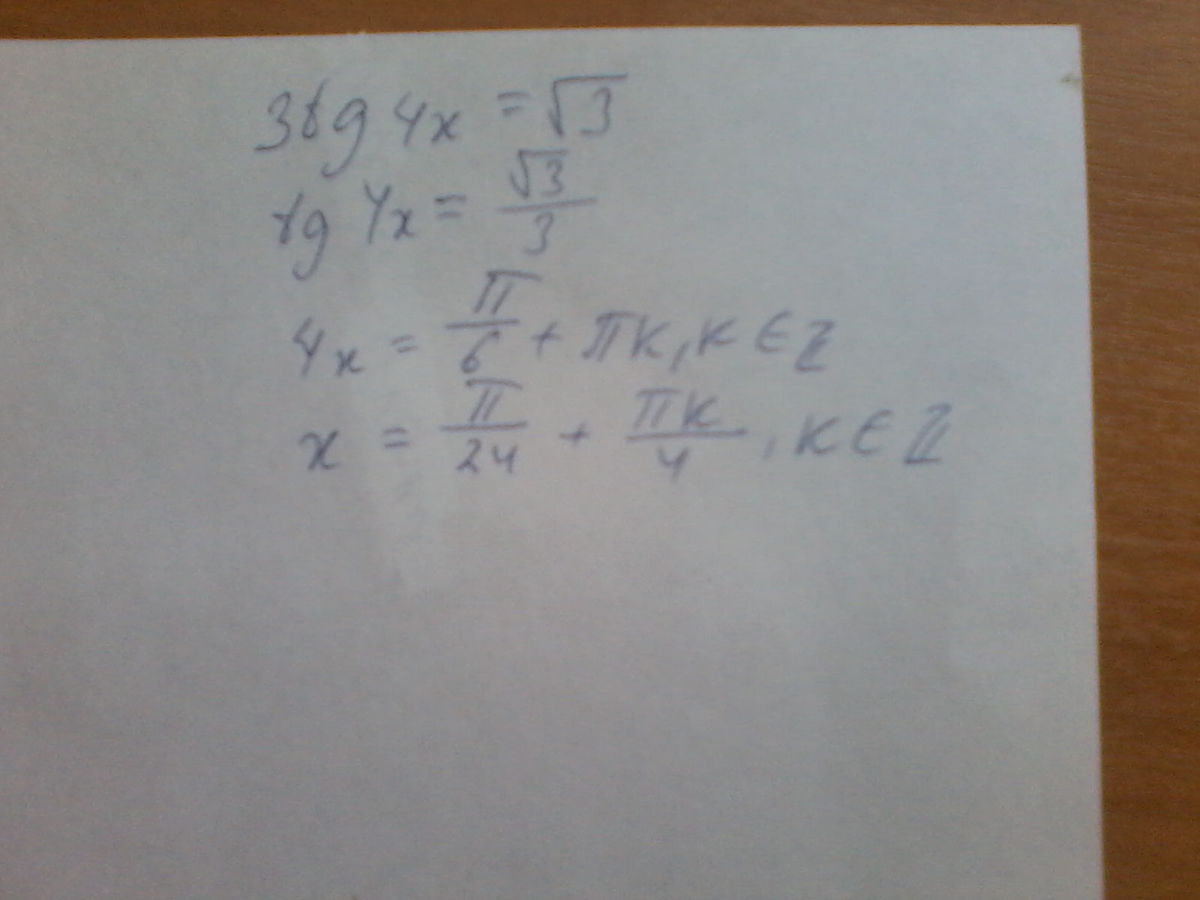 3tg 4x = √3
tg 4x = √3/3
4x = π/6 + πк, к ∈ Z
x = π/24 + πк/4, к ∈ Z